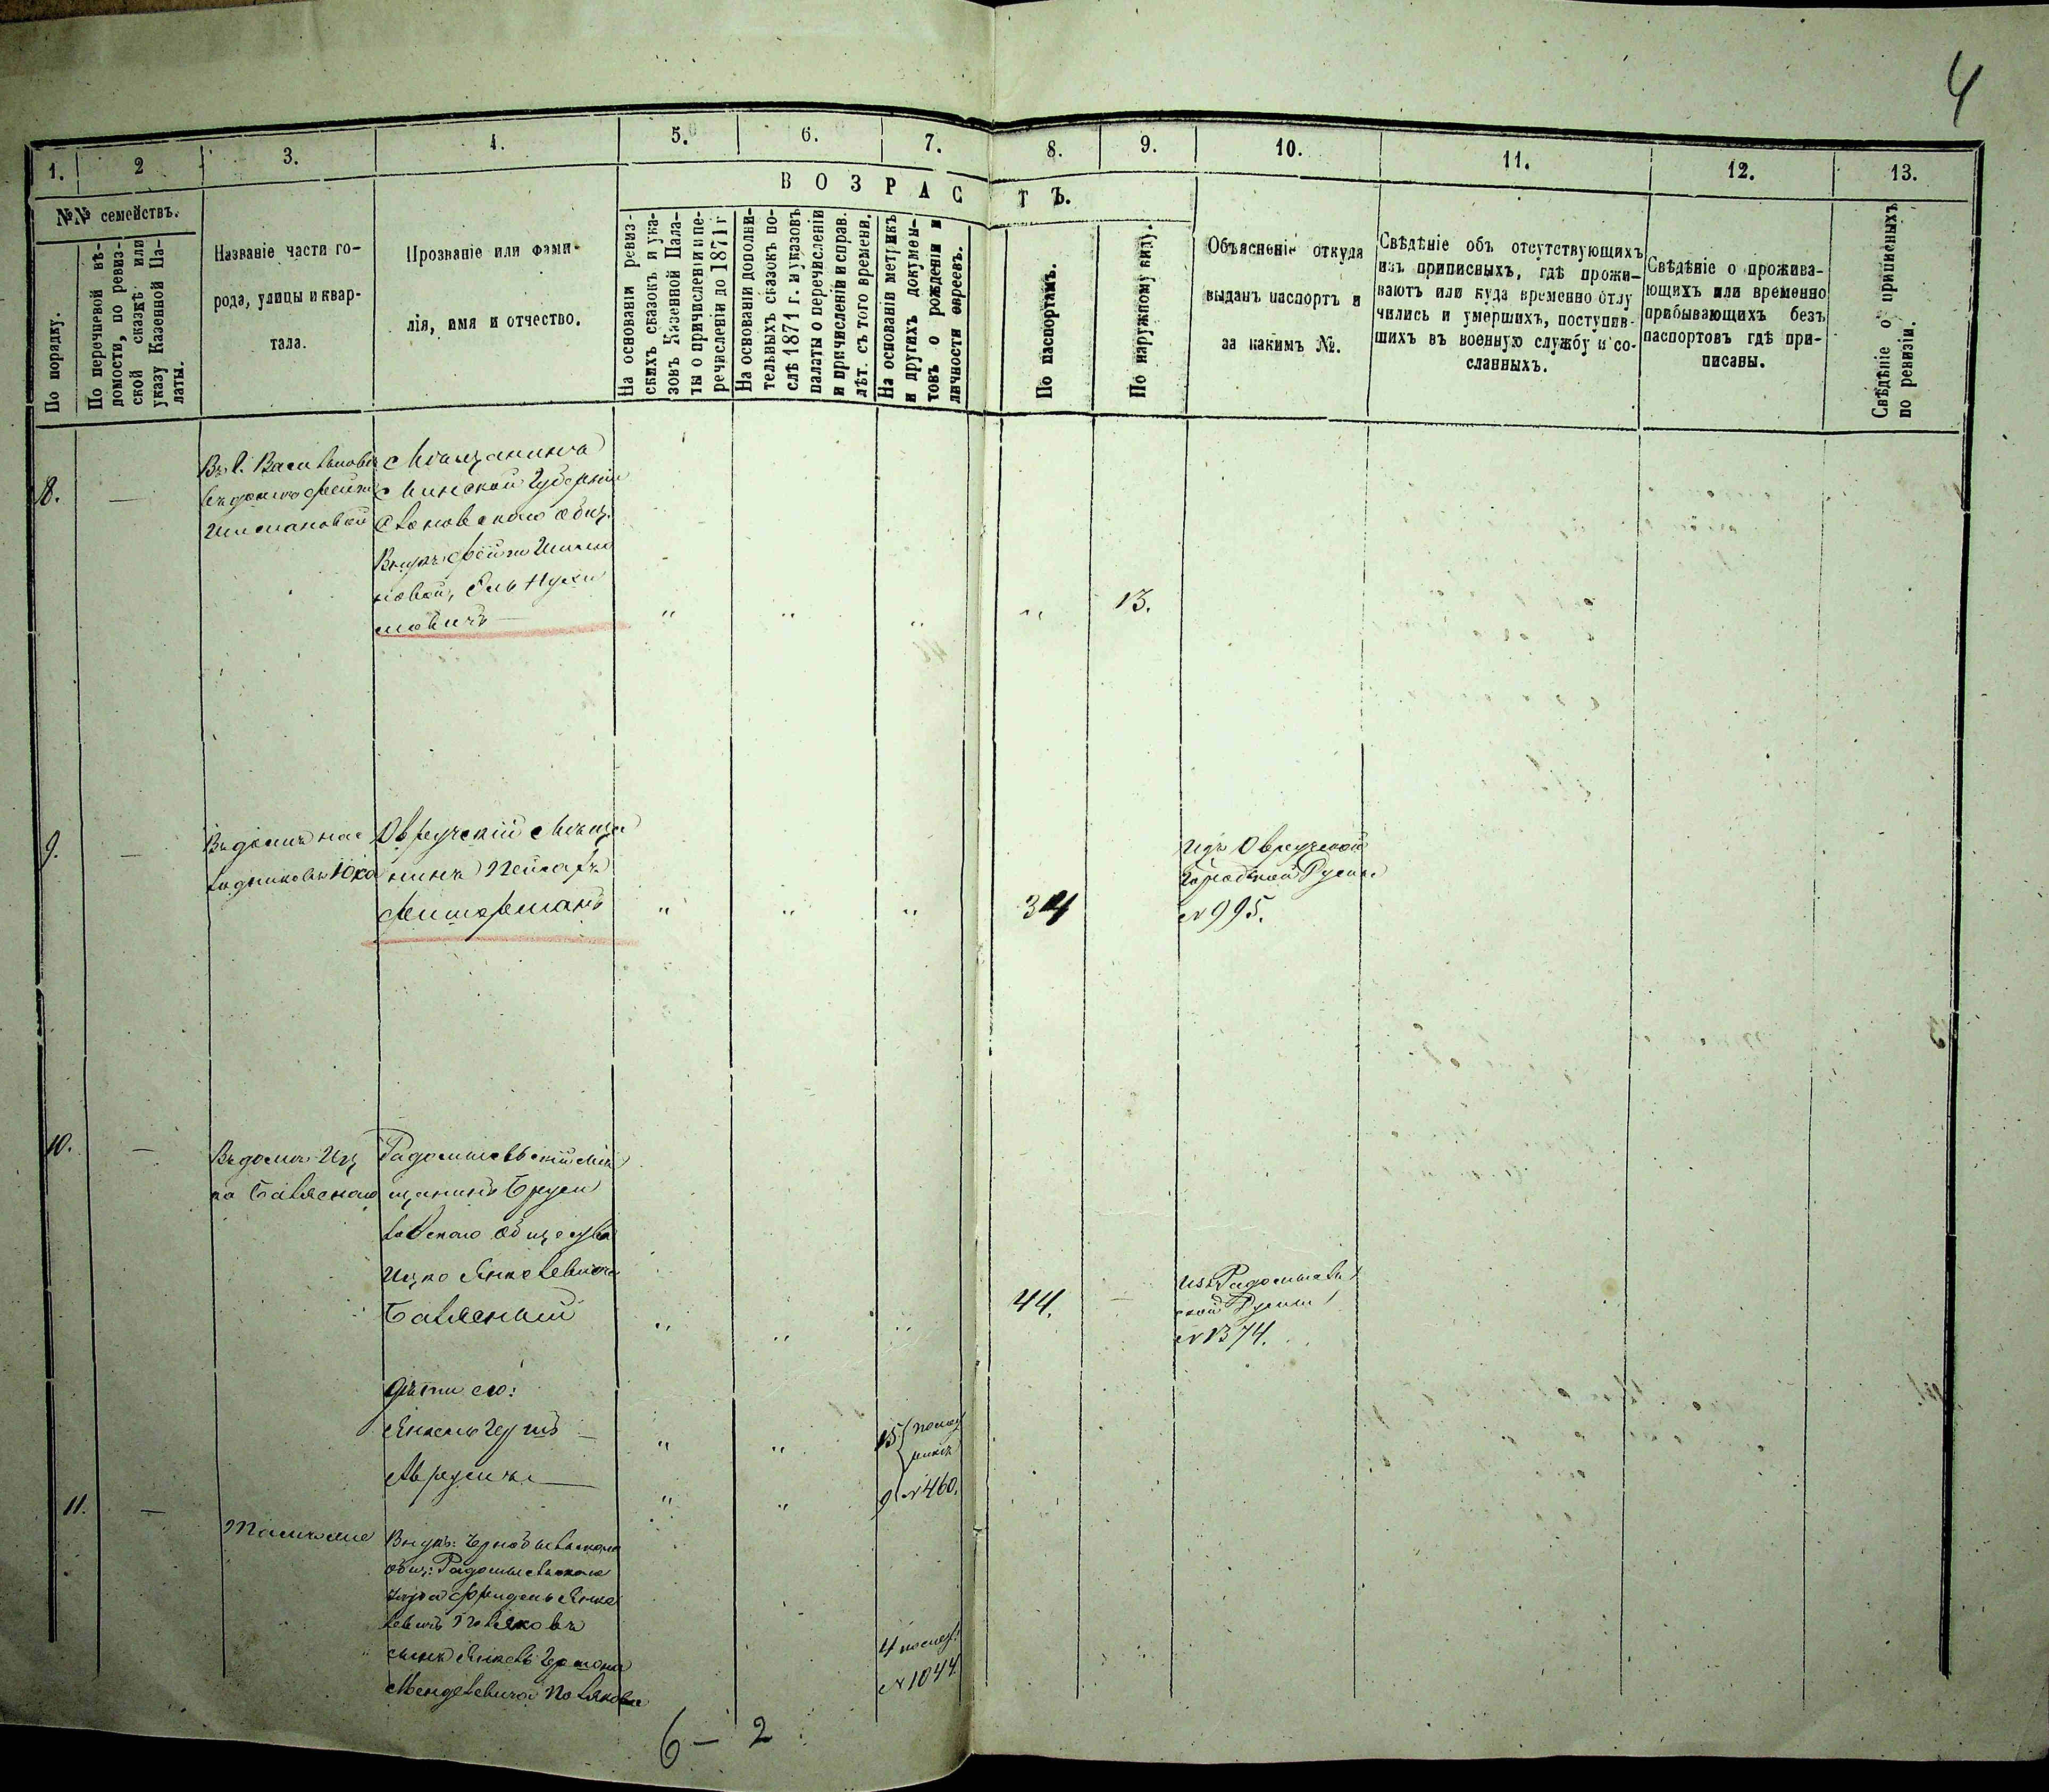 4
1. 2 3. 4. 5. 6. 7. 8. 9. 10. 11. 12. 13.
№№ семействъ.
По порядку.
По перечневой вѣ-
домости, по ревиз-
ской сказкѣ или
указу Казенной Па-
латы.
Названіе части го-
рода, улицы и квар-
тала.
Прозваніе или фами-
лія, имя и отчество.
ВОЗРАСТЪ.
На основаніи ревиз-
скихъ сказокъ и ука-
зовъ Казенной Пала-
ты о причисленіи и пе-
речисленіи до 1871 г
На основаніи дополни-
тельныхъ сказокъ по-
слѣ 1871 г. и указовъ
палаты о перечисленіи
и причисленіи и справ.
лѣт. съ того времени.
На основаніи метрикъ
и другихъ докумен-
товъ о рожденіи и
личности евреевъ.
По паспортамъ.
По наружному виду.
Объясненіе откуда
выданъ паспортъ и
за какимъ №.
Свѣдѣніе объ отсутствующихъ
изъ приписныхъ, гдѣ прожи-
ваютъ или куда временно отлу
чились и умершихъ, поступив-
шихъ въ военную службу и со-
сланныхъ.
Свѣдѣніе о прожива-
ющихъ или временно
прибывающихъ безъ
паспортовъ гдѣ при-
писаны.
Свѣдѣніе о приписныхъ
по ревизіи.
8. —
Мѣщанинъ
Минской Губерніи
общ.
Внукъ
новой,
мовичъ —
" " " " 13.
9. —
Въ домѣ нас
Овручскій мѣща
нинъ Пейсахъ
Фишерманъ
" " " 34
Изъ Овручской
Городской Думы
№ 995.
10. —
Въ домѣ Иц
ка Балясного
Радомысльскій мѣ
щанинъ Бруси
ловского общества
Ицко Янкелевичъ
Балясный
" " " 44. —
Изъ Радомысль
ской Думы
№ 1374.
Дѣти его:
Янкель Гершъ — " " 15
Аврумъ — " " 9 № 460.
11. —
Тамъ же
Внукъ: Чернобыльского
общ: Радомысльского
Янке
левичъ Поляковъ
сынъ Янкель
Менделевича Полякова
4
№ 1044
6 — 2